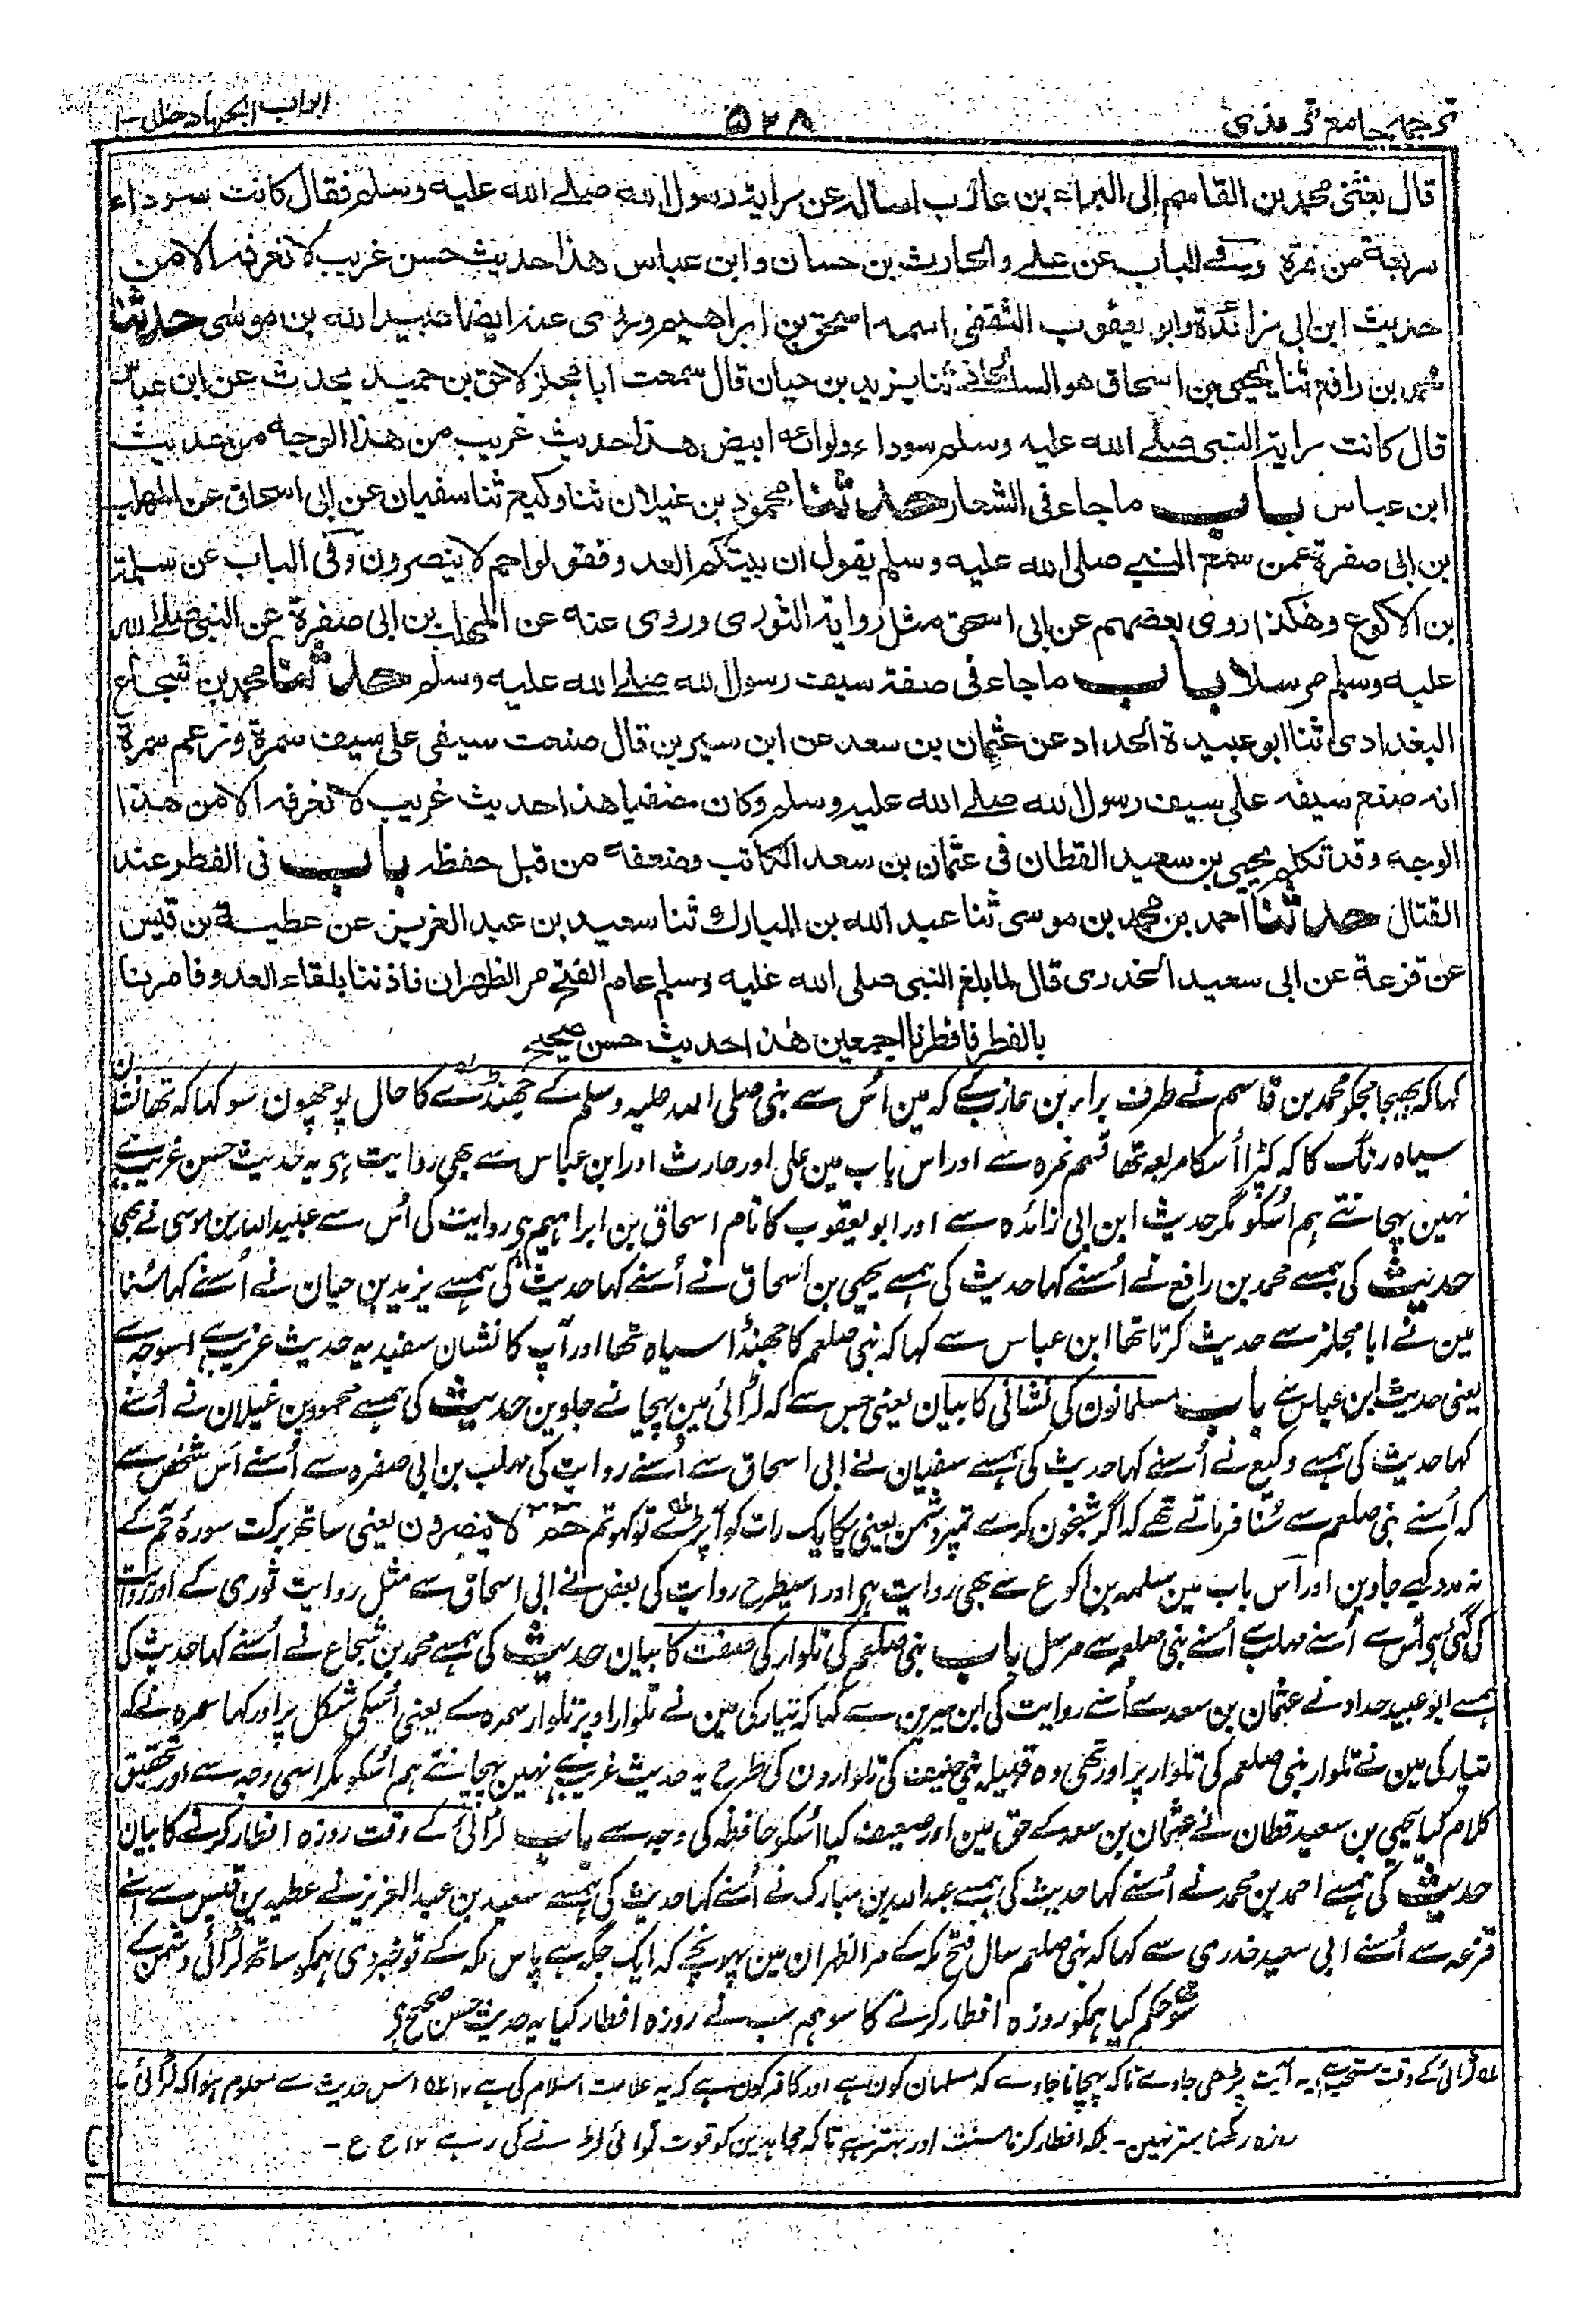 ترجمہ جامع ترمذی
۵۲۸
ابواب الجہاد جلد ۱
قال بعثنی محمد بن القاسم الی البراء بن عازب اسالہ عن رایۃ رسول اللہ صلے اللہ علیہ وسلم فقال کانت سوداء
مربعۃ من نمرۃ وفے الباب عن علے والحارث بن حسان وابن عباس ھذا حدیث حسن غریب لا نعرفہ الا من
حدیث ابن ابی زائدۃ وابو یعقوب الثقفی اسمہ اسحق بن ابراھیم وروی عنہ ایضا عبید اللہ بن موسٰی حدثنا
محمد بن رافع ثنا یحیی بن اسحاق ھو السالحانی ثنا یزید بن حیان قال سمعت ابا مجلز لاحق بن حمید یحدث عن ابن عباس
قال کانت رایۃ النبی صلے اللہ علیہ وسلم سوداء ولواءہ ابیض ھذا حدیث غریب من ھذا الوجہ من حدیث
ابن عباس باب ماجاء فی الشعار حدثنا محمود بن غیلان ثنا وکیع ثنا سفیان عن ابی اسحاق عن المھلب
بن ابی صفرۃ عمن سمع النبی صلی اللہ علیہ وسلم یقول ان بیتکم العدو فقولوا حم لا ینصرون وفی الباب عن سلمۃ
بن الاکوع وھکذا روی بعضھم عن ابی اسحق مثل روایۃ الثوری وروی عنہ عن المھلب بن ابی صفرۃ عن النبی صلے اللہ
علیہ وسلم مرسلا باب ماجاء فی صفۃ سیف رسول اللہ صلے اللہ علیہ وسلم حدثنا محمد بن شجاع
البغدادی ثنا ابو عبیدۃ الحداد عن عثمان بن سعد عن ابن سیرین قال صنعت سیفی علی سیف سمرۃ وزعم سمرۃ
انہ صنع سیفہ علی سیف رسول اللہ صلے اللہ علیہ وسلم وکان حنفیا ھذا حدیث غریب لا نعرفہ الا من ھذا
الوجہ وقد تکلم یحیی بن سعید القطان فی عثمان بن سعد الکاتب وضعفہ من قبل حفظہ باب فی الفطر عند
القتال حدثنا احمد بن محمد بن موسی ثنا عبد اللہ بن المبارک ثنا سعید بن عبد العزیز عن عطیۃ بن قیس
عن قزعۃ عن ابی سعید الخدری قال لما بلغ النبی صلی اللہ علیہ وسلم عام الفتح مر الظھران فاذننا بلقاء العدو فامرنا
بالفطر فافطرنا اجمعین ھذا حدیث حسن صحیح
کہا کہ بھیجا مجکو محمد بن قاسم نے طرف براء بن عازب کے کہ مین اُس سے نبی صلی اللہ علیہ وسلم کے جھنڈے کا حال پوچھون سو کہا کہ تھا نشان
سیاہ رنگ کا کہ کپڑا اُسکا مربعہ تھا قسم نمرہ سے اور اس باب مین علی اور حارث اور ابن عباس سے بھی روایت ہی یہ حدیث حسن غریب ہے
نہین پہچانتے ہم اُسکو مگر حدیث ابن ابی زائدہ سے اور ابو یعقوب کا نام اسحاق بن ابراہیم ہی روایت کی اُس سے عبید اللہ بن موسی نے بھی
حدیث کی ہمسے محمد بن رافع نے اُسنے کہا حدیث کی ہمسے یحیی بن اسحاق نے اُسنے کہا حدیث کی ہمسے یزید بن حیان نے اُسنے کہا سُنا
مین نے ابا مجلز سے حدیث کرتا تھا ابن عباس سے کہا کہ نبی صلعم کا جھنڈا سیاہ تھا اور آپ کا نشان سفید یہ حدیث غریب ہے اسوجہ سے
یعنی حدیث ابن عباس سے باب مسلمانون کی نشانی کا بیان یعنی جس سے کہ لڑائی مین پہچانے جاوین حدیث کی ہمسے محمود بن غیلان نے اُسنے
کہا حدیث کی ہمسے وکیع نے اُسنے کہا حدیث کی ہمسے سفیان نے ابی اسحاق سے اُسنے روایت کی مہلب بن ابی صفرہ سے اُسنے اُس شخص سے
کہ اُسنے نبی صلعم سے سُنا فرماتے تھے کہ اگر شبخون کرے تمپر دشمن یعنی یکایک رات کو آپڑے تو کہو تم حٰم لا ینصرون یعنی ساتھ برکت سورۂ حم کے
نہ مدد کیے جاوین اور اس باب مین سلمہ بن اکوع سے بھی روایت ہی اور اسیطرح روایت کی بعض نے ابی اسحاق سے مثل روایت ثوری کے اور روایت
کی گئی ہی اُس سے اُسنے مہلب سے اُسنے نبی صلعم سے مرسل باب نبی صلعم کی تلوار کی صفت کا بیان حدیث کی ہمسے محمد بن شجاع نے اُسنے کہا حدیث کی
ہمسے ابو عبید حداد نے عثمان بن سعد سے اُسنے روایت کی ابن سیرین سے کہا کہ تیار کی مین نے تلوار اوپر تلوار سمرہ کے یعنی اُسکی شکل پر اور کہا سمرہ نے کہ
تیار کی مین نے تلوار نبی صلعم کی تلوار پر اور تھی وہ قبیلہ بنی حنیفہ کی تلوارون کی طرح یہ حدیث غریب ہے نہین پہچانتے ہم اُسکو مگر اسی وجہ سے اور تحقیق
کلام کیا یحیی بن سعید قطان نے عثمان بن سعد کے حق مین اور ضعیف کیا اُسکو حافظہ کی وجہ سے باب لڑائی کے وقت روزہ افطار کرنے کا بیان
حدیث کی ہمسے احمد بن محمد نے اُسنے کہا حدیث کی ہمسے عبد اللہ بن مبارک نے اُسنے کہا حدیث کی ہمسے سعید بن عبد العزیز نے عطیہ بن قیس سے اُسنے
قزعہ سے اُسنے ابی سعید خدری سے کہا کہ نبی صلعم سال فتح مکہ کے مر الظہران مین پہونچے کہ ایک جگہ ہے پاس مکہ کے تو خبر دی ہمکو ساتھ لڑائی دشمن کے
سو حکم کیا ہمکو روزہ افطار کرنے کا سو ہم سب نے روزہ افطار کیا یہ حدیث حسن صحیح ہی
لہ لڑائی کے وقت مستحب ہے یہ آیت پڑھی جاوے تاکہ پہچانا جاوے کہ مسلمان کون ہے اور کافر کون ہے کہ یہ علامت اسلام کی ہے ۱۲ اس حدیث سے معلوم ہوا کہ لڑائی
روزہ رکھنا بہتر نہین - بلکہ افطار کرنا سنت اور بہتر ہے تاکہ مجاہدین کو قوت لڑائی لڑنے کی رہے ۱۲ ح ع -